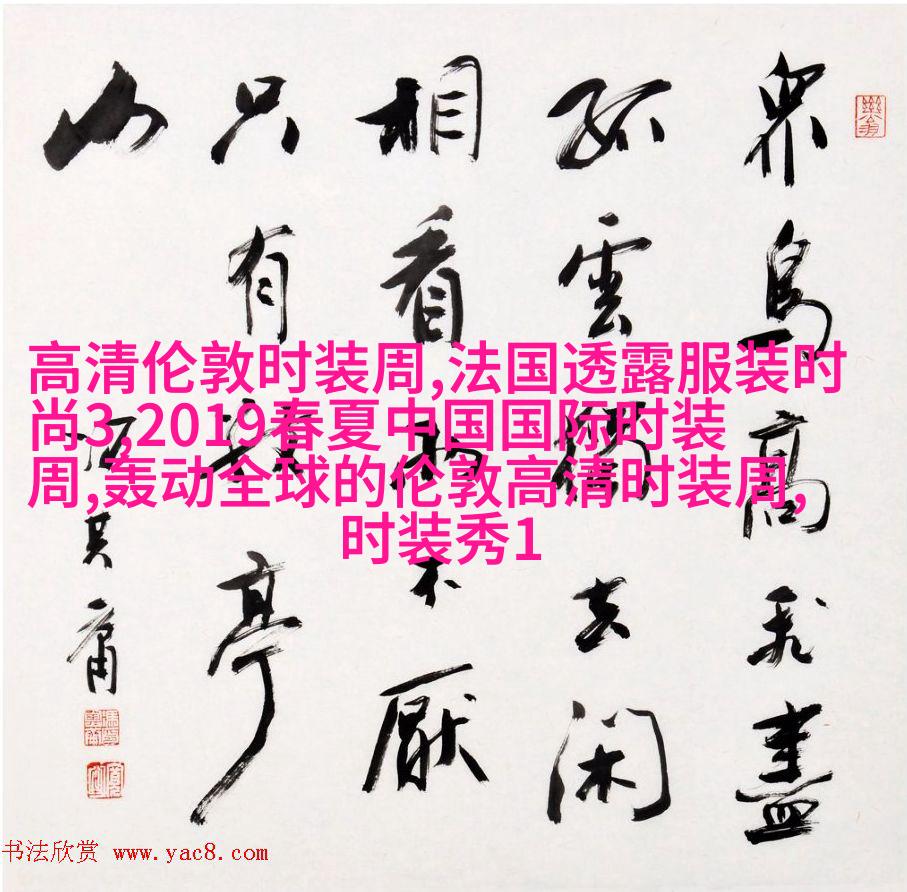 眾鳥高飛盡
孤雲獨去閑
相看不厭
只有亭
山
其庸
高清伦敦时装周,法国透露服装时
尚3,2019春夏中国国际时装
周,轰动全球的伦敦高清时装周,
时装秀1
书法欣赏 www.yac8.com